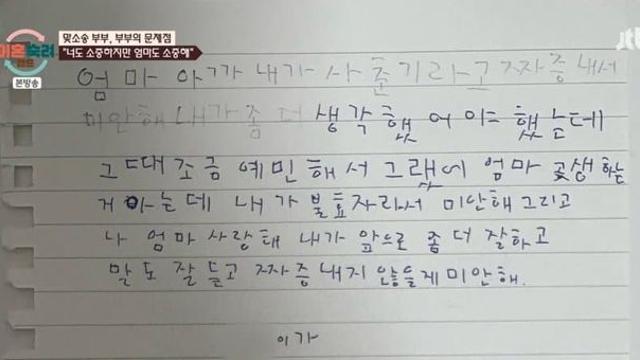 맞소송 부부, 부부의 문제점
"너도 소중하지만 엄마도 소중해"
이혼숙려
캠프
본방송
JT
엄마 아까 내가 사춘기라고 짜증내서
미안해 내가 좀 더 생각했어야 했는데
그때 조금 예민해서 그랬어 엄마 고생하는
거 아는데 내가 불효자라서 미안해 그리고
나 엄마 사랑해 내가 앞으로 좀 더 잘하고
말도 잘 듣고 짜증 내지 않을게 미안해.
이가